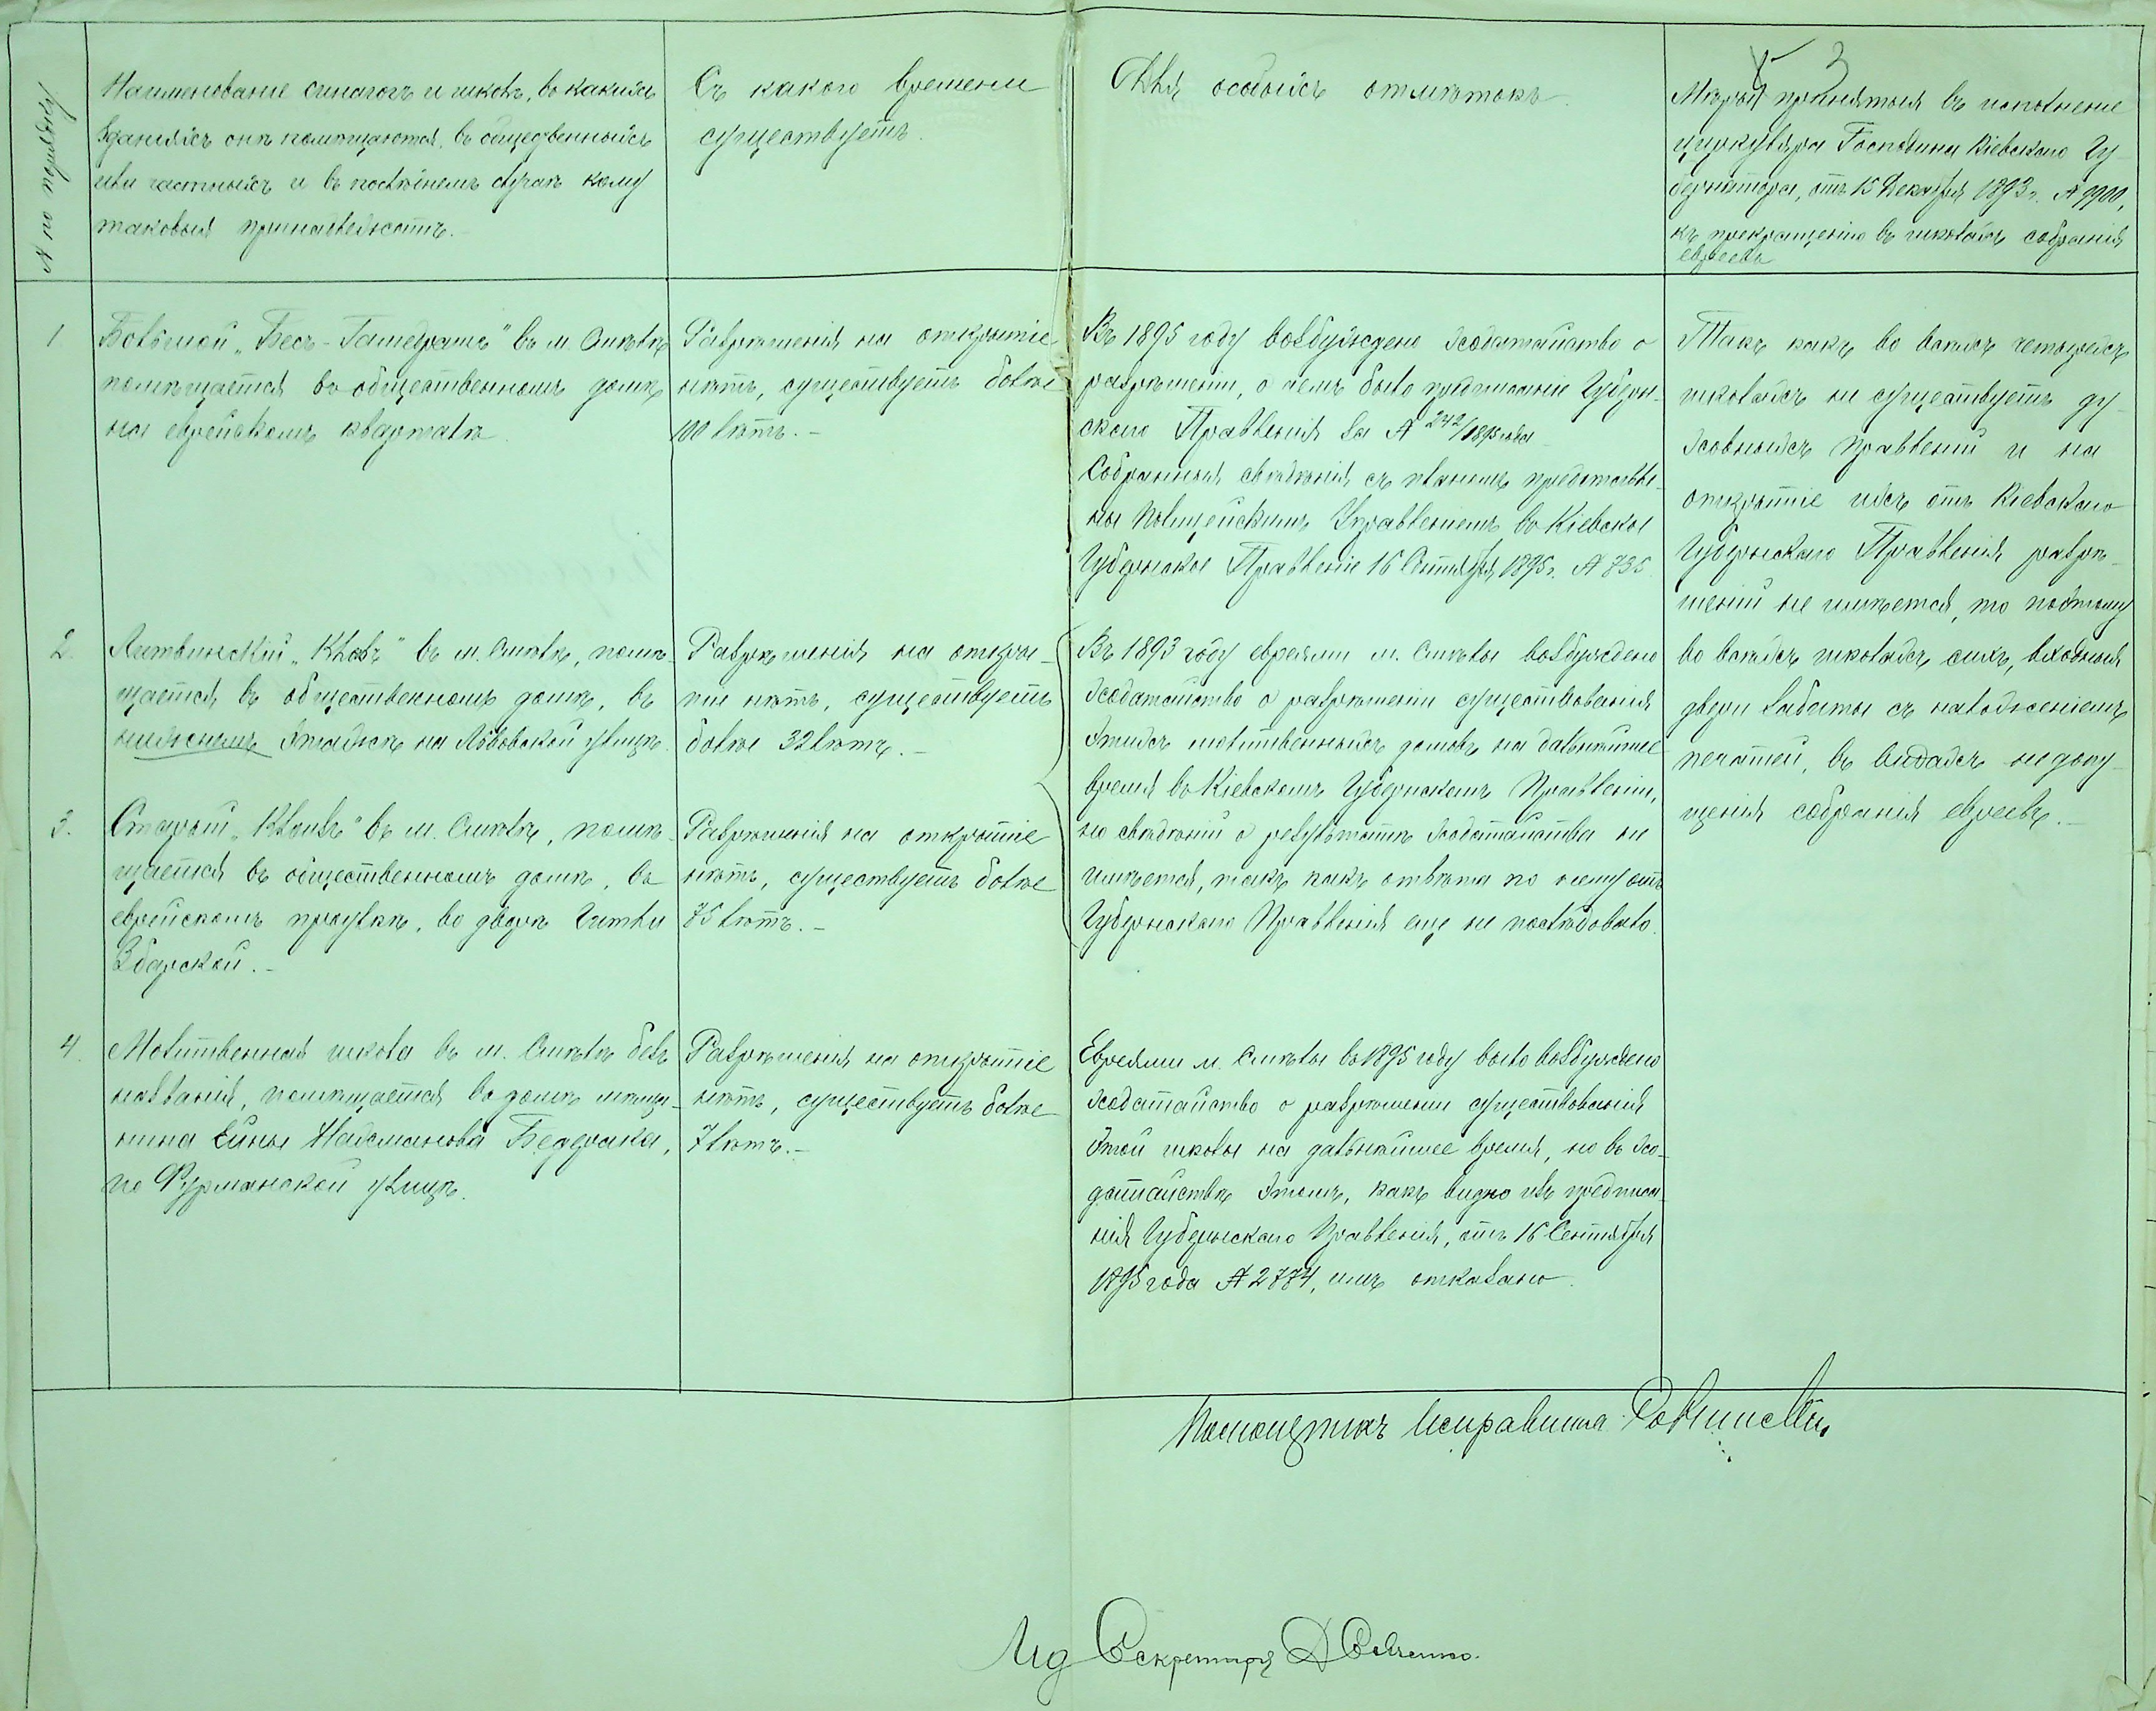 3
№ по порядку
Наименованіе синагогъ и школъ, въ какихъ
зданіяхъ онѣ помѣщаются, въ общественныхъ
или частныхъ и въ послѣднемъ случаѣ кому
таковыя принадлежатъ.-
Съ какого времени
существуетъ.
Для особыхъ отмѣтокъ.
Мѣры принятыя въ исполненіе
циркуляра Господина Кіевскаго Гу-
бернатора, отъ 15 Декабря 1893 г. № 9900,
къ прекращенію въ школахъ собранія
евреевъ
1
Большой „Бесъ-Гамедрашъ" въ м. Смѣлѣ
помѣщается въ общественномъ домѣ
на еврейскомъ кварталѣ.
Разрѣшенія на открытіе
нѣтъ, существуетъ болѣе
100 лѣтъ.-
Въ 1895 году возбуждено ходатайство о
разрѣшеніи, о чемъ было предписаніе Губерн-
скаго Правленія за № 242/1895 года
Собранныя свѣдѣнія съ планомъ представле-
ны Полицейскимъ Управленіемъ въ Кіевское
Губернское Правленіе 16 Сентября 1895 г. № 735.
Такъ какъ во всѣхъ четырехъ
школахъ не существуетъ ду-
ховныхъ правленій и на
открытіе ихъ отъ Кіевскаго
Губернскаго Правленія разрѣ-
шеній не имѣется, то поэтому
во всѣхъ школахъ сихъ, входныя
двери забиты съ наложеніемъ
печатей, въ видахъ недопу-
щенія собранія евреевъ.-
2.
Литвинскій „Клозъ" въ м. Смѣлѣ, помѣ-
щается въ общественномъ домѣ, въ
нижнемъ этажѣ на Львовской улицѣ.
Разрѣшенія на откры-
тіе нѣтъ, существуетъ
болѣе 32 лѣтъ.-
Въ 1893 году евреями м. Смѣлы возбуждено
ходатайство о разрѣшеніи существованія
этихъ молитвенныхъ домовъ на дальнѣйшее
время въ Кіевскомъ Губернскомъ Правленіи,
но свѣдѣній о результатѣ ходатайства не
имѣется, такъ какъ отвѣта по нему отъ
Губернскаго Правленія еще не послѣдовало.
3.
Старый „Клоизъ" въ м. Смѣлѣ, помѣ-
щается въ общественномъ домѣ, въ
еврейскомъ проулкѣ, во дворѣ Гитли
Збарской.-
Разрѣшенія на открытіе
нѣтъ, существуетъ болѣе
75 лѣтъ.-
4.
Молитвенная школа въ м. Смѣлѣ безъ
названія, помѣщается въ домѣ мѣща-
нина
по Фурманской улицѣ.
Разрѣшенія на открытіе
нѣтъ, существуетъ болѣе
7 лѣтъ.-
Евреями м. Смѣлы въ 1895 году было возбуждено
ходатайство о разрѣшеніи существованія
этой школы на дальнѣйшее время, но въ хо-
датайствѣ этомъ, какъ видно изъ предписа-
нія Губернскаго Правленія, отъ 16 Сентября
1895 года № 2774, имъ отказано.
Помощникъ Исправника
Ид Секретаря